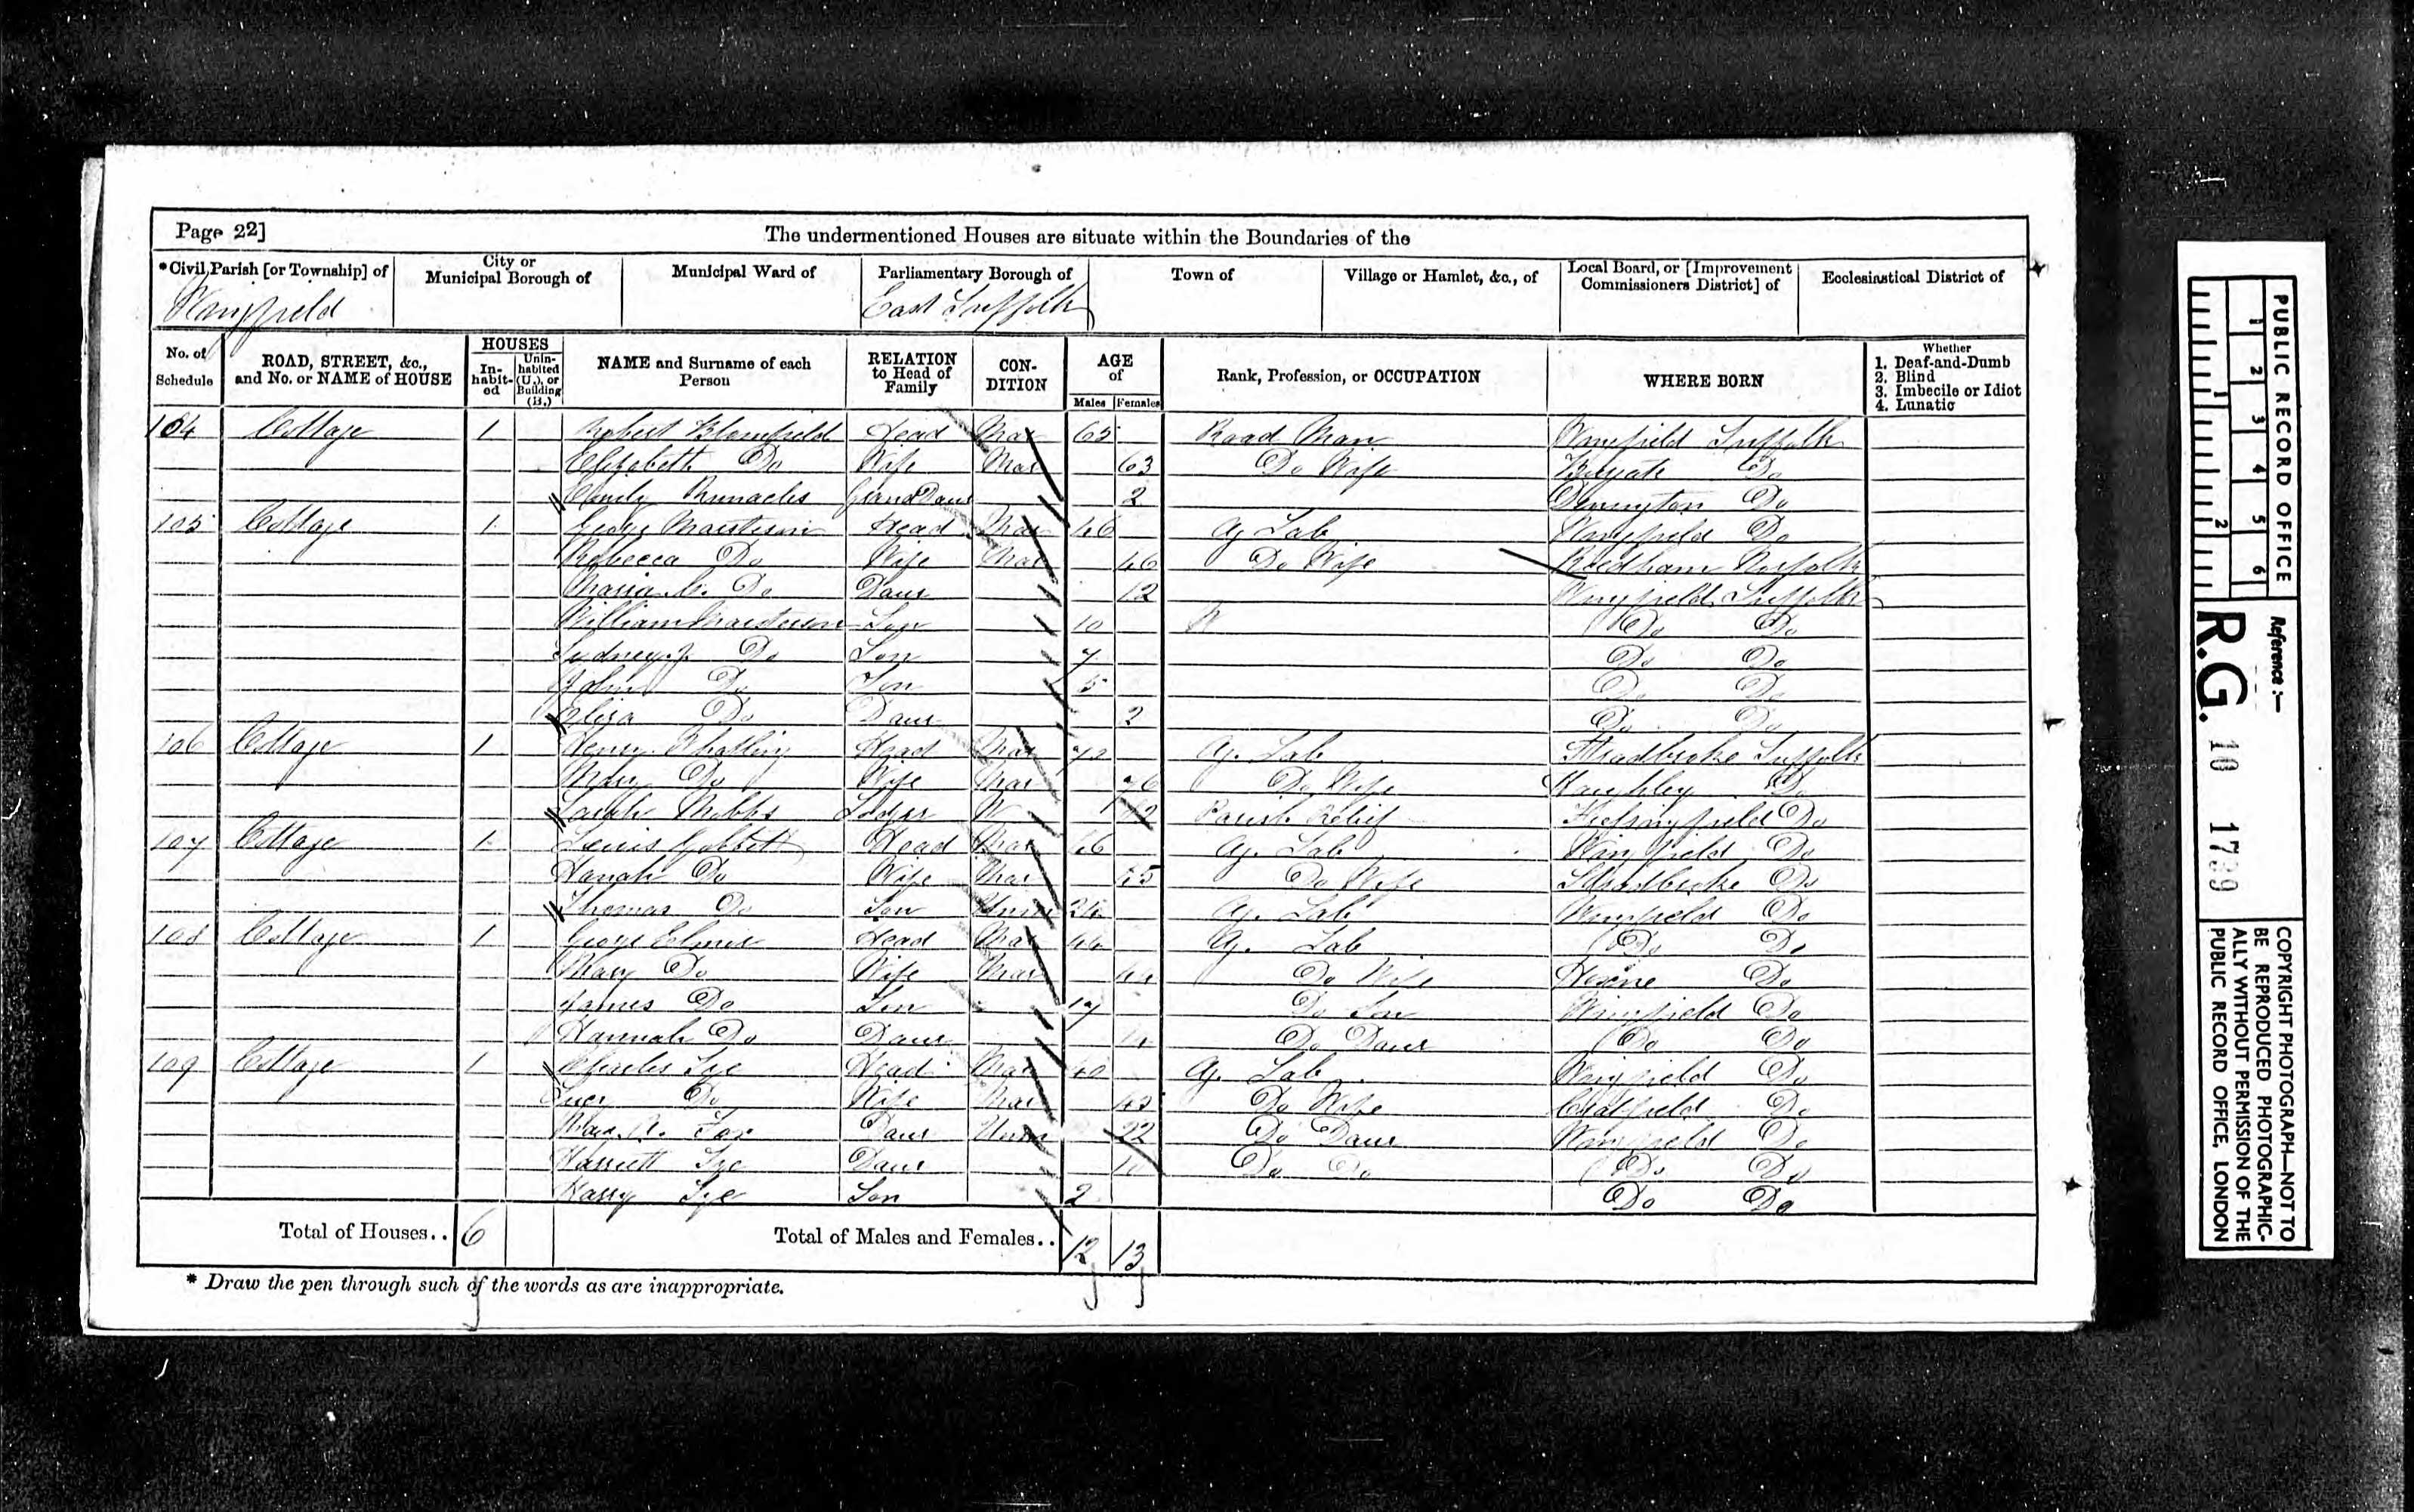 Page 22]
The undermentioned Houses are situate within the Boundaries of the
*Civil Parish [or Township] of
City or Municipal Borough of
Municipal Ward of
Parliamentary Borough of
Town of
Village or Hamlet, &c., of
Local Board, or [Improvement Commissioners District] of
Ecclesiastical District of
Wingfield East Suffolk
No. of Schedule
ROAD, STREET, &c., and No. or NAME of HOUSE
HOUSES
In-habit-ed
Unin-habited (U.), or Building (B.)
NAME and Surname of each Person
RELATION to Head of Family
CON-DITION
AGE of
Males Females
Rank, Profession, or OCCUPATION
WHERE BORN
Whether
1. Deaf-and-Dumb
2. Blind
3. Imbecile or Idiot
4. Lunatic
104 Cottage 1 Robert Blomfield Head Mar 65 Road Man Wingfield Suffolk
Elizabeth Do Wife Mar 63 Do Wife Do
Emily Runacles Grand Daur 2 Dennington Do
105 Cottage 1 George Head Mar 46 Ag Lab Wingfield Do
Rebecca Do Wife Mar 46 Do Wife Reedham Norfolk
Maria Do Daur 12 Wingfield Suffolk
William Son 10 Do Do
Sydney J Do Son 7 Do Do
John Do Son 5 Do Do
Eliza Do Daur 2 Do Do
106 Cottage 1 Henry Head Mar 72 Ag. Lab Stradbroke Suffolk
Mary Do Wife Mar 76 Do Wife Do
Mobbs Lodger W Parish Relief Do
107 Cottage 1 Lewis Gobbett Head Mar 66 Ag. Lab Wingfield Do
Hanah Do Wife Mar Do Wife Stradbroke Do
Thomas Do Son Unm Ag. Lab Wingfield Do
108 Cottage 1 George Head Mar 44 Ag. Lab Do Do
Mary Do Wife Mar 44 Do Wife Hoxne Do
James Do Son 17 Do Son Wingfield Do
Hannah Do Daur Do Daur Do Do
109 Cottage 1 Charles Lye Head Mar 40 Ag. Lab Wingfield Do
Lucy Do Wife Mar Do Wife Do
Daur Unm 22 Do Daur Wingfield Do
Harriett Lye Daur 10 Do Do Do Do
Harry Lye Son 2 Do Do
Total of Houses.. 6 Total of Males and Females.. 12 13
* Draw the pen through such of the words as are inappropriate.
1 2 3 4 5 6
1 2
PUBLIC RECORD OFFICE
Reference:—
R.G. 10 1739
COPYRIGHT PHOTOGRAPH—NOT TO
BE REPRODUCED PHOTOGRAPHIC-
ALLY WITHOUT PERMISSION OF THE
PUBLIC RECORD OFFICE, LONDON